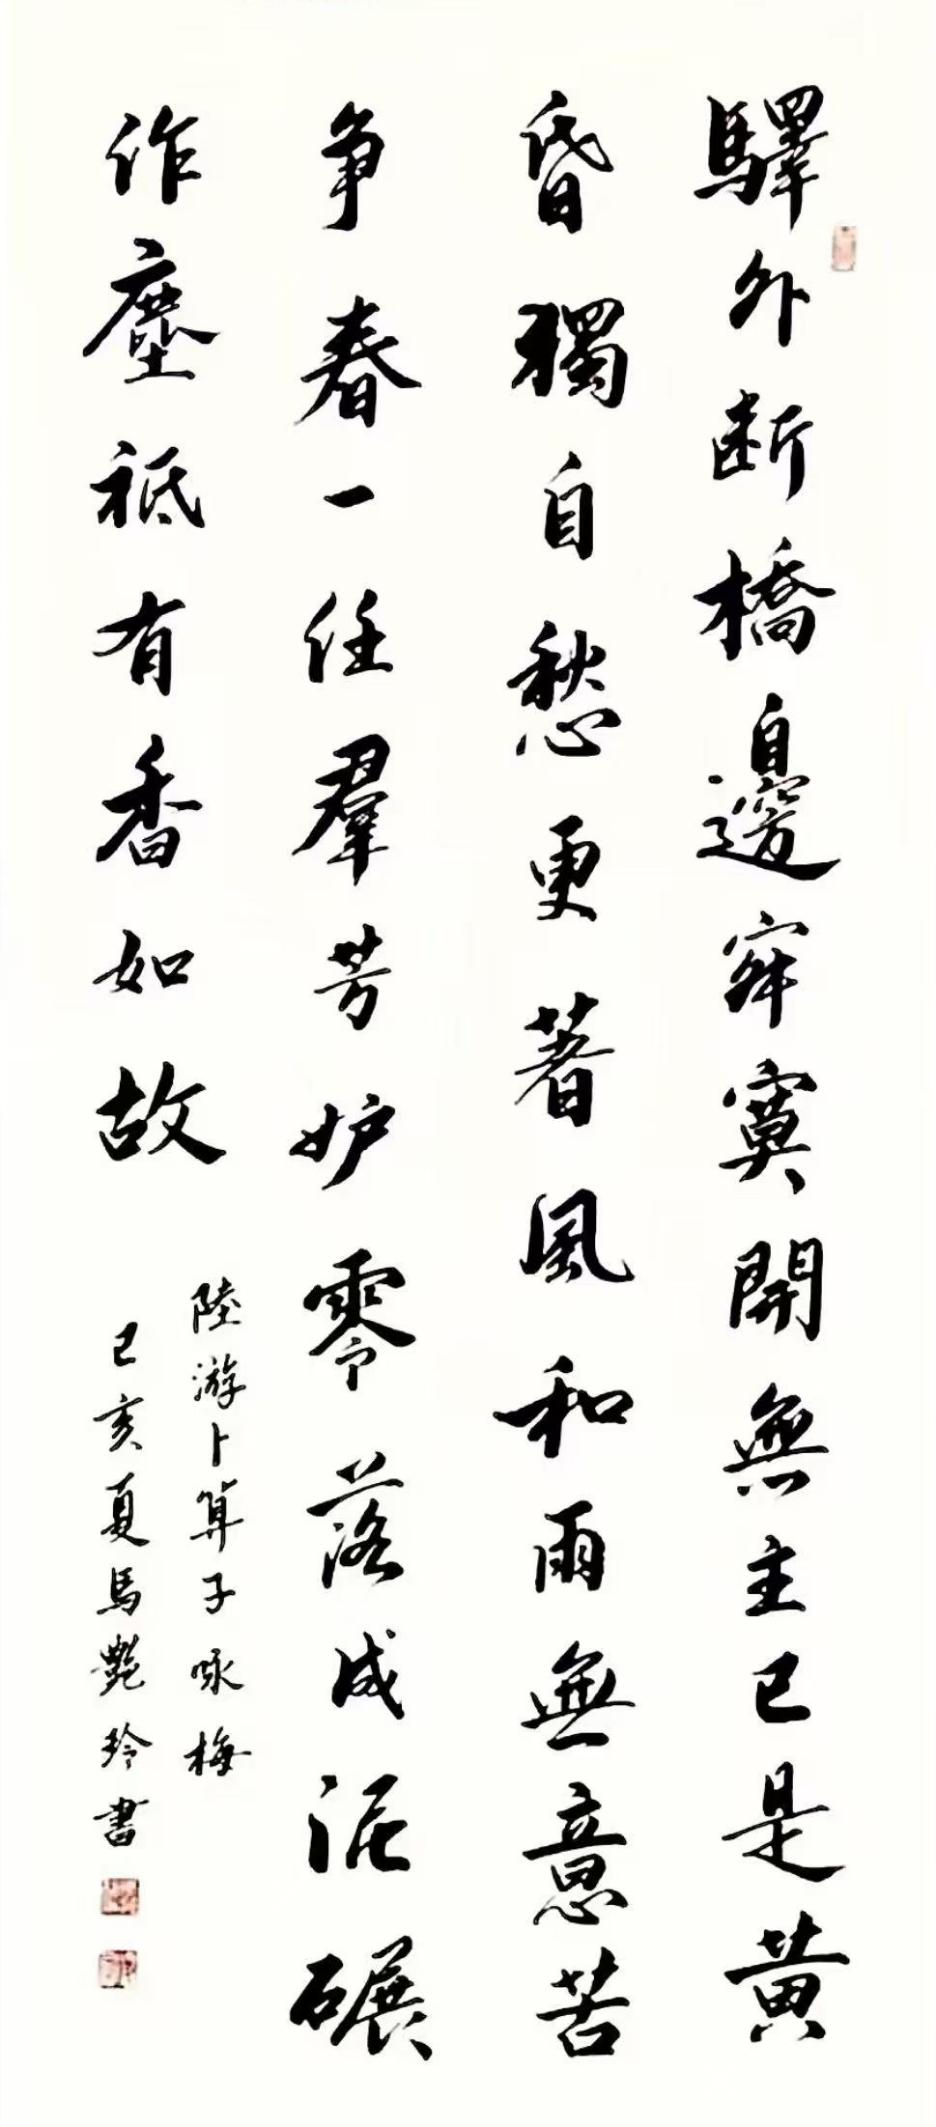 驛外断橋邊寂寞開無主已是黄
昏獨自愁更著風和雨無意苦
争春一任羣芳妒零落成泥碾
作塵祗有香如故
陸游卜算子咏梅
己亥夏馬艷玲書